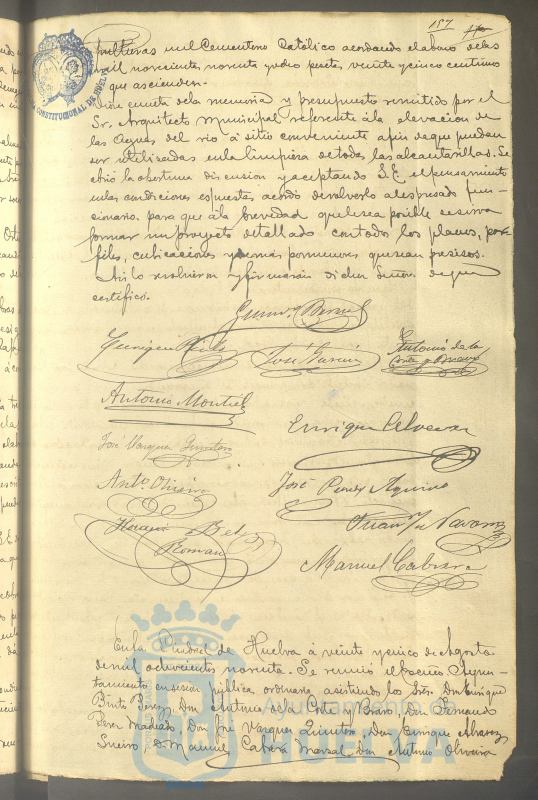 157
en el Cementerio Católico acordando el abono de las
mil novecientas noventa y ocho pesetas veinte y cinco centimos
a que ascienden.
Dióse cuenta de la memoria y presupuesto remitido por el
Sr. Arquitecto Municipal referente á la elevacion de
las Aguas del rio á sitio conveniente a fin de que puedan
ser utilizadas en la limpieza de todas las alcantarillas. Se
abrió la oportuna discusion y aceptando S.E. el pensamiento
en las condiciones espuestas acordó devolverlo al espresado fun-
cionario para que á la brevedad que le sea posible se sirva
formar un proyecto detallado con todos los planos, per-
files, cubicaciones y demas pormenores que sean precisos.
Asi lo resolvieron y firmarán dichos Señores de que
certifico.
José García
Antonio de la
Corte y Bravo
Antonio Montiel
Enrique
José Vazquez Quintero
Antº Oliveira
José Perez Aquino
Juan Navarro
Horacio Bel
Roman
Manuel Cabrera
En la Ciudad de Huelva á veinte y cinco de Agosto
de mil ochocientos noventa. Se reunió el Excmo Ayun-
tamiento en sesion pública ordinaria asistiendo los Sres. Don Enrique
Perez, Don Antonio de la Corte y Bravo, Don Fernando
Perez Machado, Don José Vazquez Quintero, Don Enrique Alvarez
Don Manuel Cabrera Don Antonio Oliveira
Ayuntamiento de
HUELVA